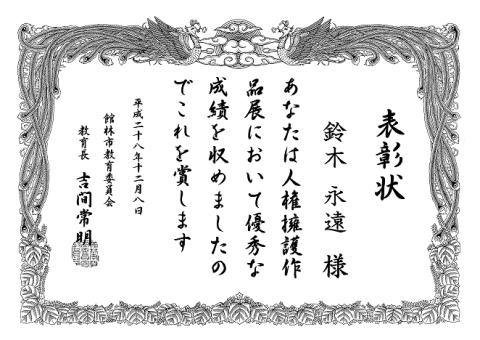 表彰状
鈴木 永遠 様
あなたは人権擁護作
品展において優秀な
成績を収めましたの
でこれを賞します
平成二十八年十二月八日
館林市教育委員会
教育長 吉間常明